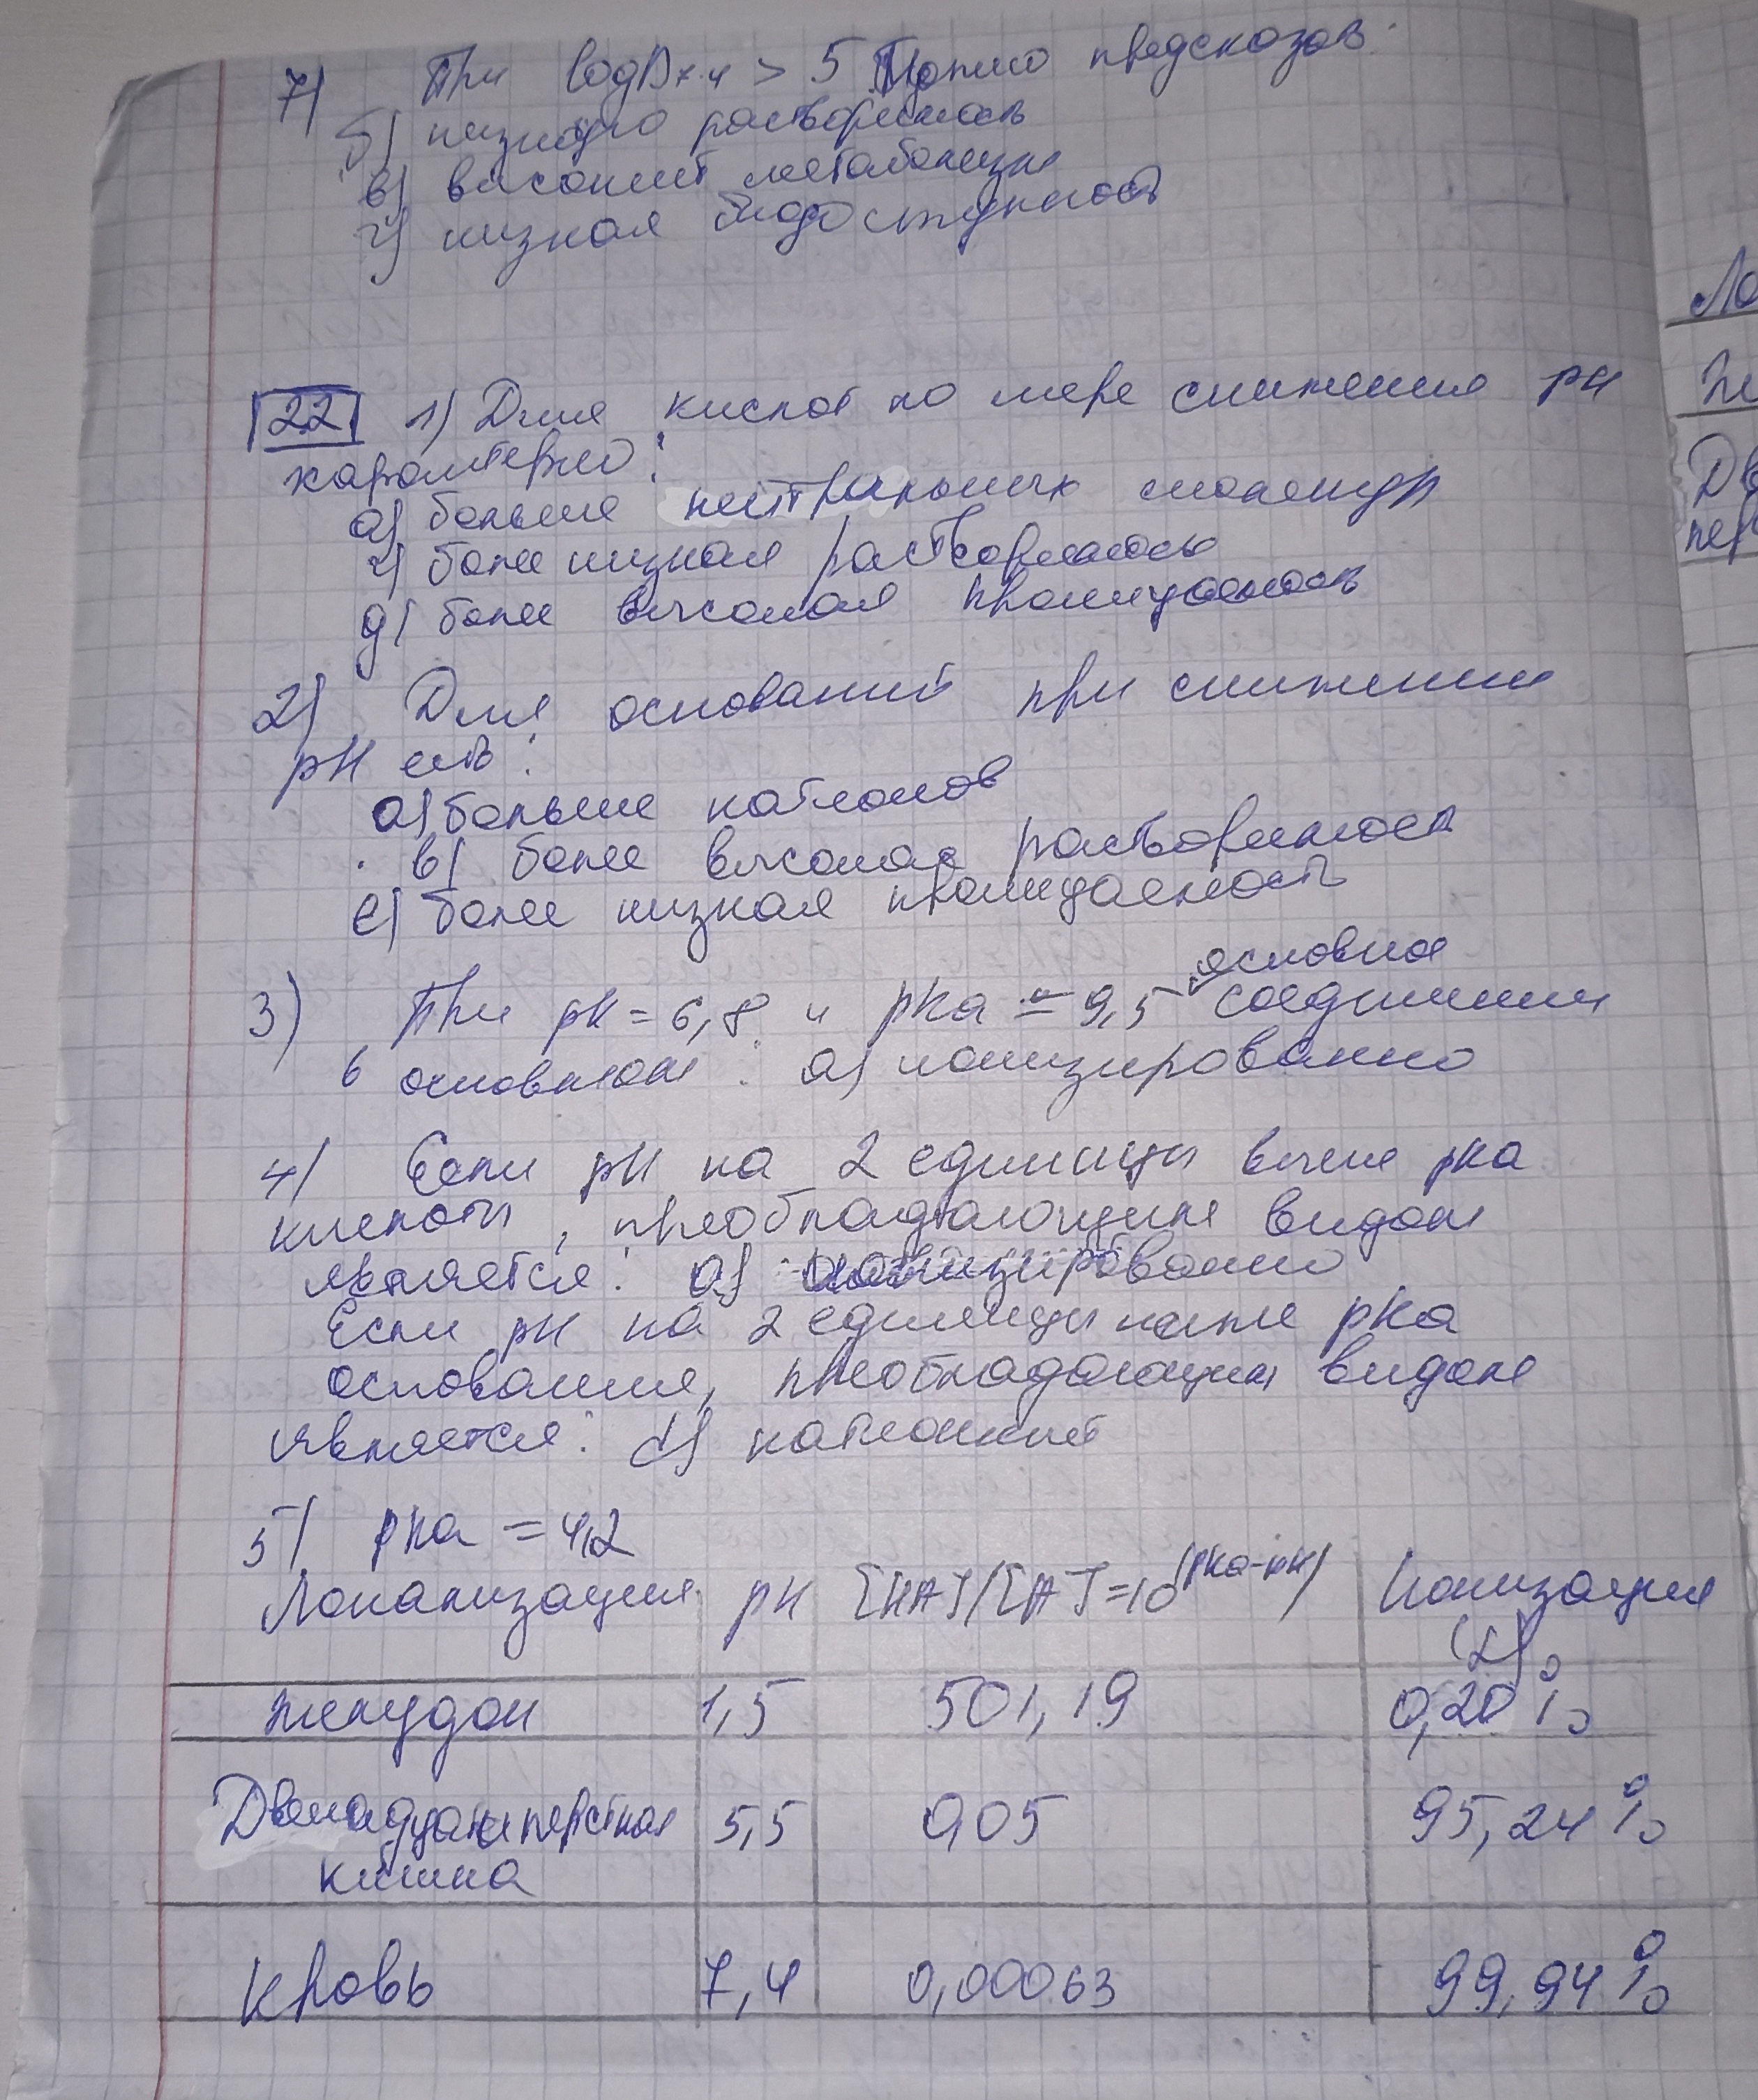 7) При logD7.4 > 5 можно предсказать:
б) низкую растворимость
в) высокий метаболизм
г) низкая биодоступность
22 1) Для кислот по мере снижения pH
характерно:
а) больше нейтральных молекул
г) более низкая растворимость
д) более высокая проницаемость
2) Для оснований при снижении
pH есть:
а) больше катионов
в) более высокая растворимость
е) более низкая проницаемость
основное
3) При pH = 6,8 и pKa = 9,5 соединение
в основном: а) ионизировано
4) Если pH на 2 единицы выше pKa
кислоты, преобладающим видом
является: а) ионизировано
Если pH на 2 единицы ниже pKa
основания, преобладающим видом
является: d) катионный
5) pKa = 4,2
Локализация pH [HA]/[A] = 10^(pKa-pH) Ионизация
(α)
желудок 1,5 501,19 0,20 %
Двенадцатиперстная 5,5 0,05 95,24 %
кишка
Кровь 7,4 0,00063 99,94 %
Ло
Дв
пер